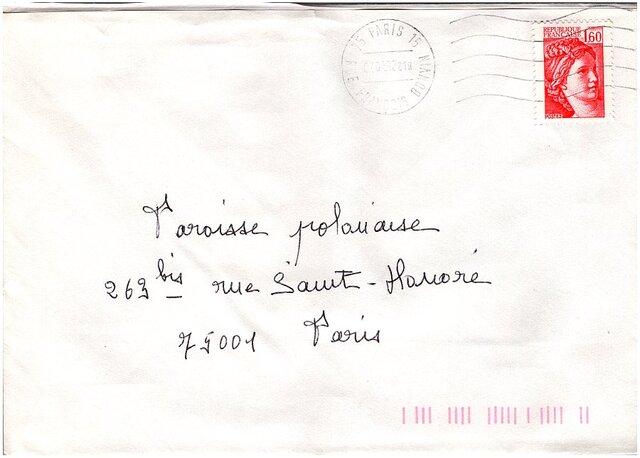 75 PARIS 15
REPUBLIQUE
FRANÇAISE
1,60
Paroisse polonaise
263 bis rue Saint-Honoré
75001 Paris